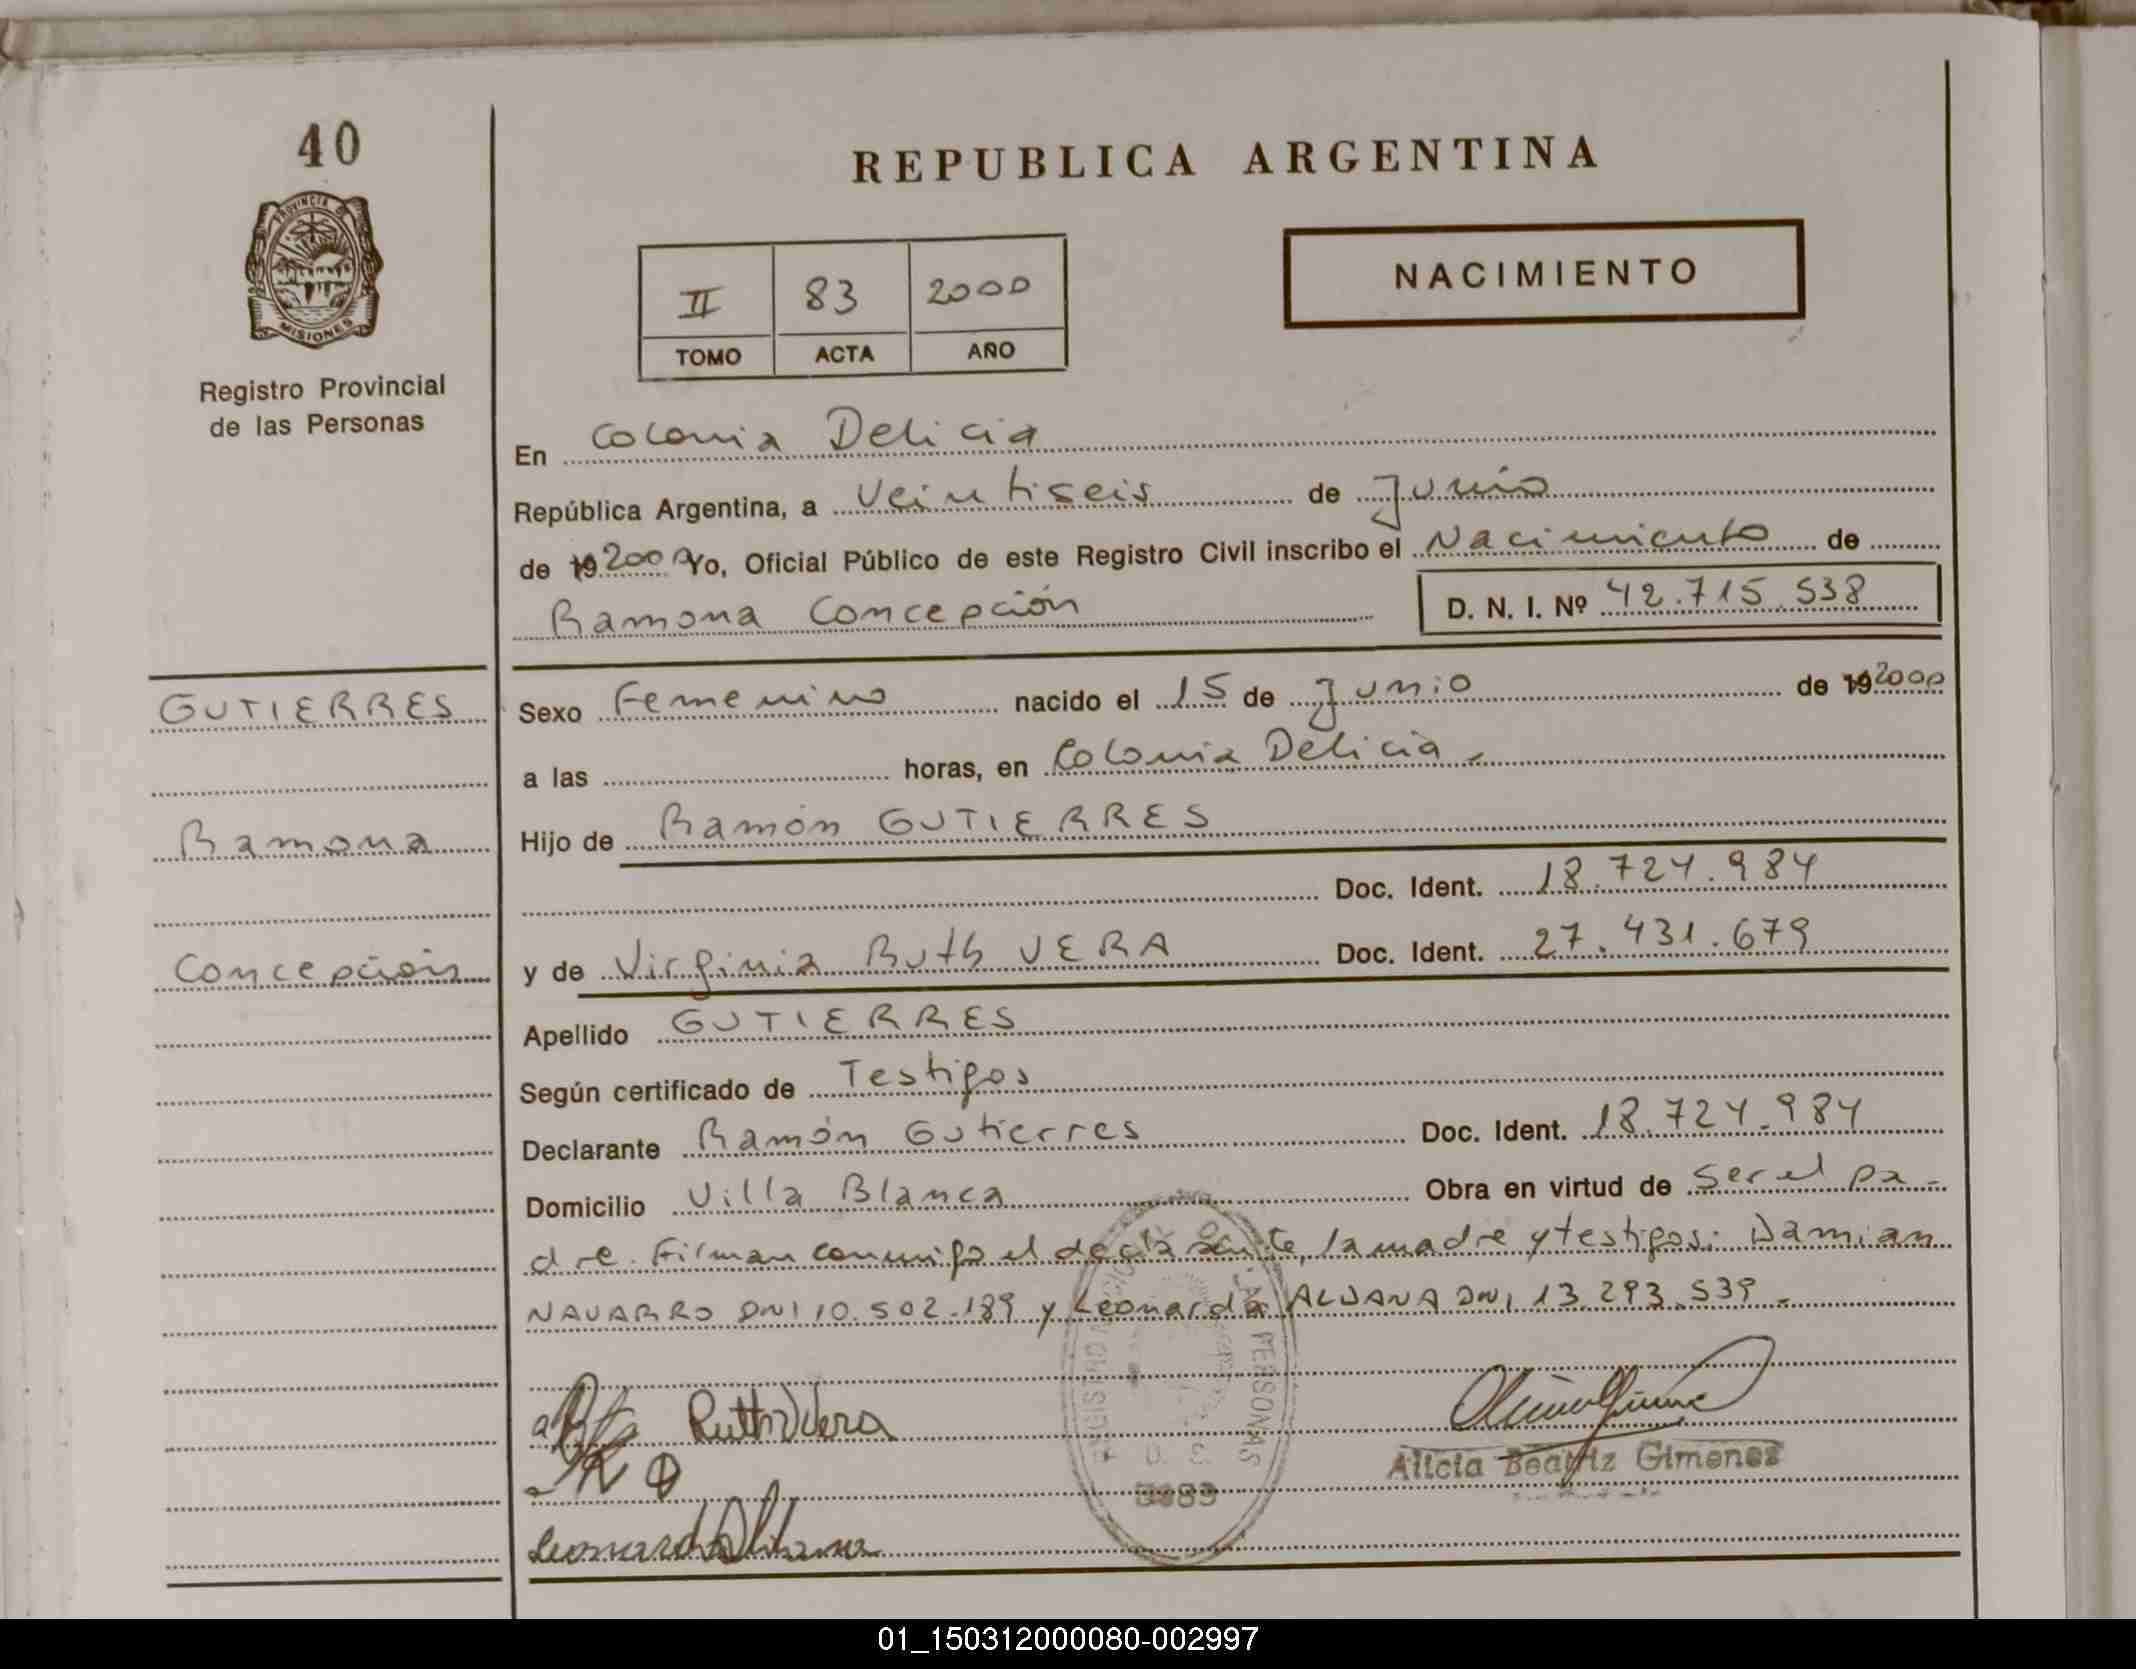 40
PROVINCIA DE
MISIONES
Registro Provincial
de las Personas
REPUBLICA ARGENTINA
NACIMIENTO
II 83 2000
TOMO ACTA AÑO
En Colonia Delicia
República Argentina, a Veintiseis de Junio
de 19 2000 Yo, Oficial Público de este Registro Civil inscribo el Nacimiento de
Ramona Concepción D. N. I. Nº 42.715.538
GUTIERRES
Ramona
Concepción
Sexo Femenino nacido el 15 de Junio de 19 2000
a las horas, en Colonia Delicia.
Hijo de Ramón GUTIERRES
Doc. Ident. 18.724.984
y de Virginia Ruth VERA Doc. Ident. 27.431.679
Apellido GUTIERRES
Según certificado de Testigos
Declarante Ramón Gutierres Doc. Ident. 18.724.984
Domicilio Villa Blanca Obra en virtud de ser el pa-
dre. Firman conmigo el declarante, la madre y testigos: Damian
NAVARRO DNI 10.502.189 y Leonarda ALDANA DNI 13.293.539.-
Ruth Vera
Alicia Beatriz Gimenez
LAS PERSONAS
01_150312000080-002997